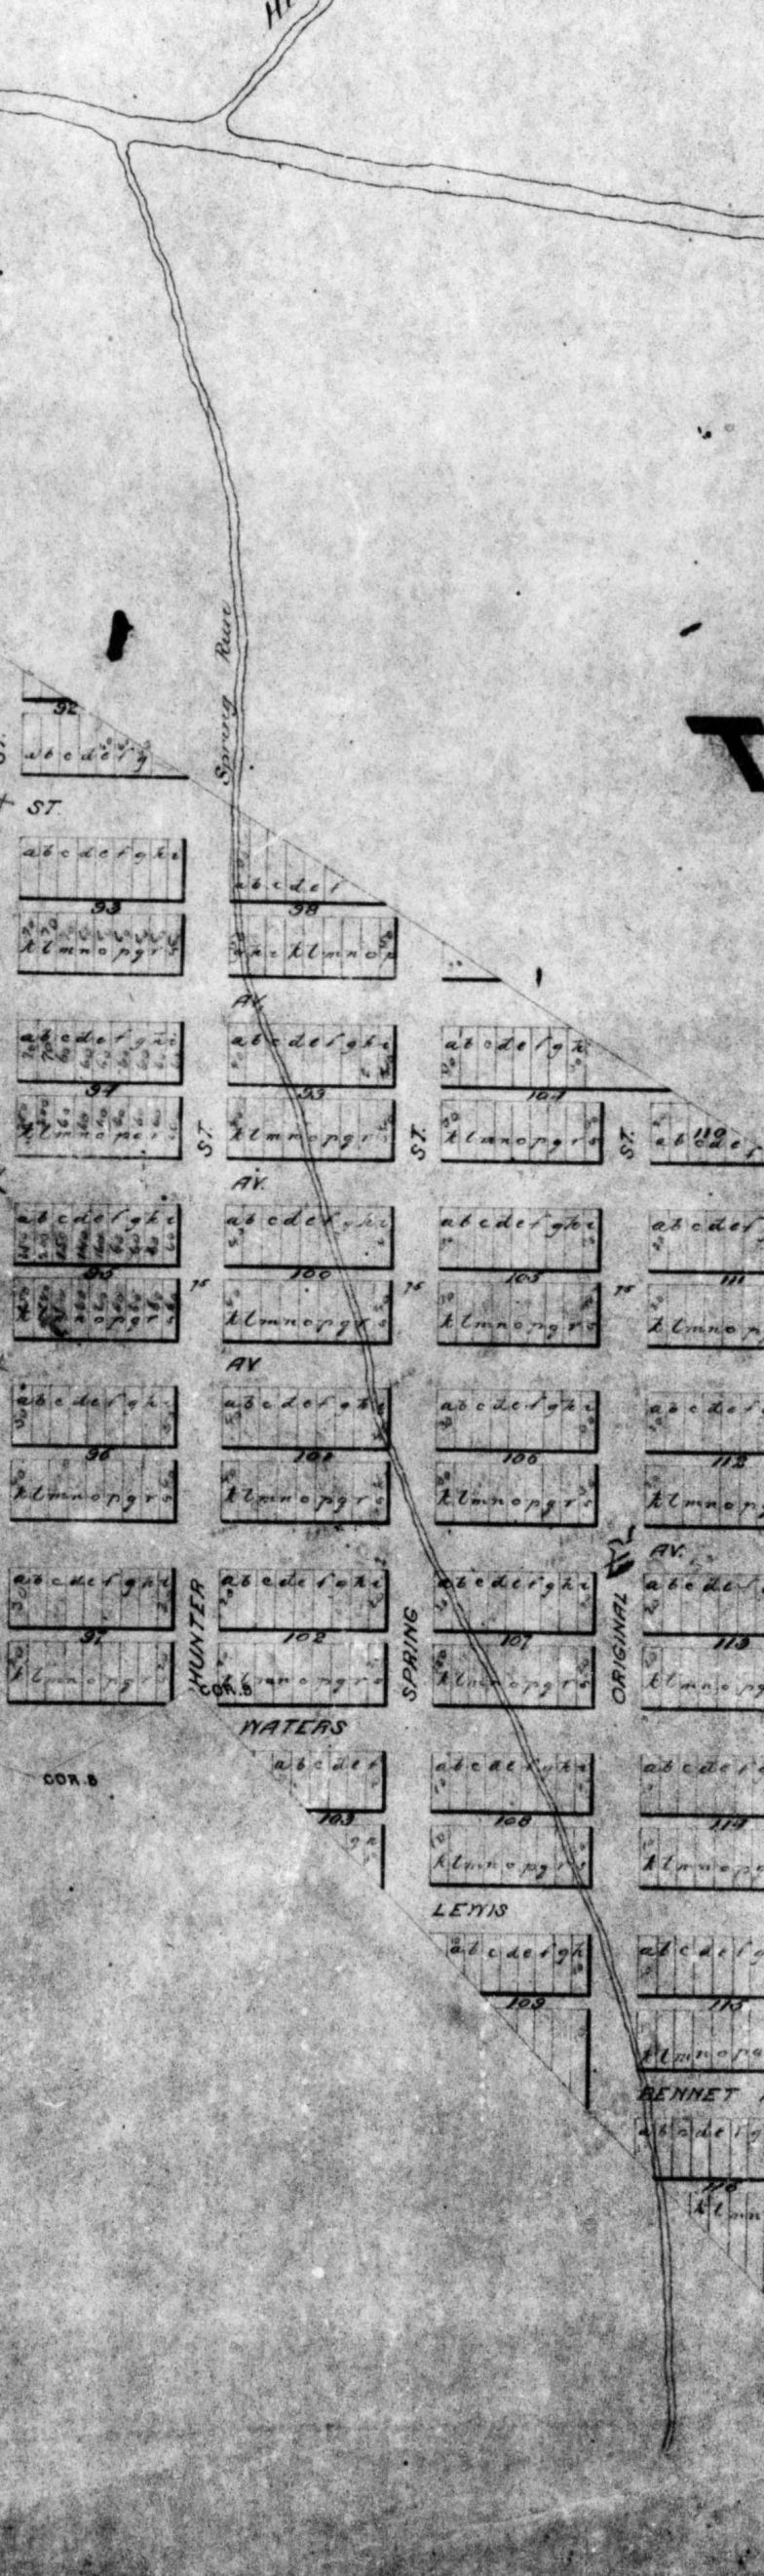 HI
Spring Run
T
92
a b c d e f g
ST.
a b c d e f g h i
93
k l m n o p q r s
a b c d e f
98
g h i k l m n o p
AV.
a b c d e f g h i
94
k l m n o p q r s
a b c d e f g h i
99
k l m n o p q r s
a b c d e f g h
104
k l m n o p q r s
110
a b c d e f
ST.
ST.
ST.
AV.
a b c d e f g h i
95
a b c d e f g h i
100
k l m n o p q r s
a b c d e f g h i
105
k l m n o p q r s
a b c d e f
111
k l m n o p
75
75
75
AV
a b c d e f g h i
96
k l m n o p q r s
a b c d e f g h i
101
k l m n o p q r s
a b c d e f g h i
106
k l m n o p q r s
a b c d e f
112
k l m n o p q
AV.
a b c d e f g h i
97
k l m n o p q r s
a b c d e f g h i
102
k l m n o p q r s
a b c d e f g h i
107
k l m n o p q r s
a b c d e f
113
k l m n o p q
HUNTER
SPRING
ORIGINAL
COR. 9
WATERS
COR. 8
a b c d e f
103
g h
a b c d e f g h i
108
k l m n o p q r s
a b c d e f
114
k l m n o p q
LEWIS
a b c d e f g h
109
a b c d e f g
115
k l m n o p q
BENNET
a b c d e f g
116
k l m n